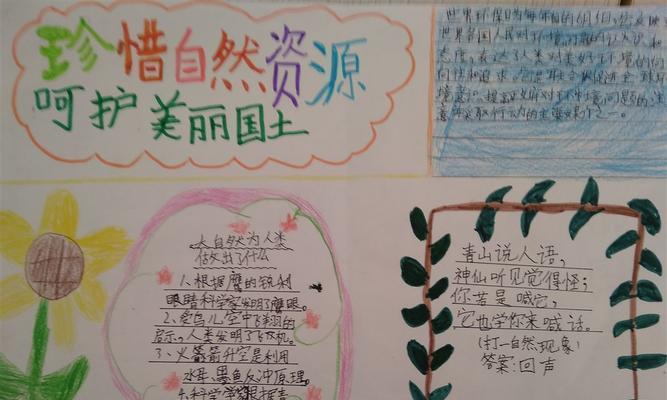 珍惜自然资源
呵护美丽国土
世界环保日为每年的6月5日,它反映
世界各国人民对环境问题的认识和
态度,表达了人类对美好环境的向
往和追求。它是联合国促进全球环
境意识、提高政府对环境问题的注
意并采取行动的主要媒介之一。
大自然为人类
做出了什么
1、根据鹰的锐利
眼睛科学家发明了鹰眼。
2、受鸟儿空中飞翔的
启示,人类发明了飞机。
3、火箭升空是利用
水母、墨鱼反冲原理。
4、科学家根据
青山说人语,
神仙听见觉得怪;
你若是喊它,
它也学你来喊话。
(打一自然现象)
答案:回声